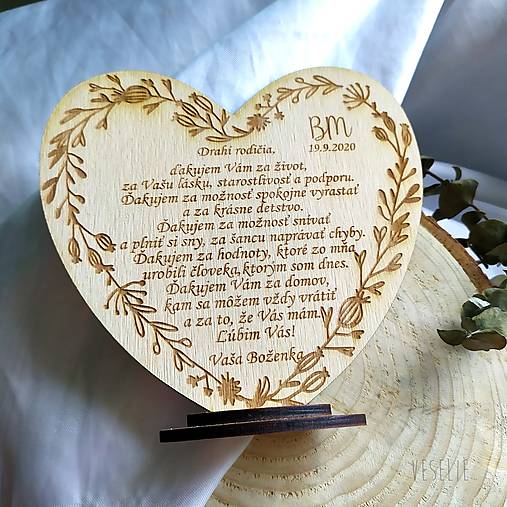 BM
19.9.2020
Drahí rodičia,
ďakujem Vám za život,
za Vašu lásku, starostlivosť a podporu.
Ďakujem za možnosť spokojne vyrastať
a za krásne detstvo.
Ďakujem za možnosť snívať
a plniť si sny, za šancu naprávať chyby.
Ďakujem za hodnoty, ktoré zo mňa
urobili človeka, ktorým som dnes.
Ďakujem Vám za domov,
kam sa môžem vždy vrátiť
a za to, že Vás mám.
Ľúbim Vás!
Vaša Boženka
VESELIE